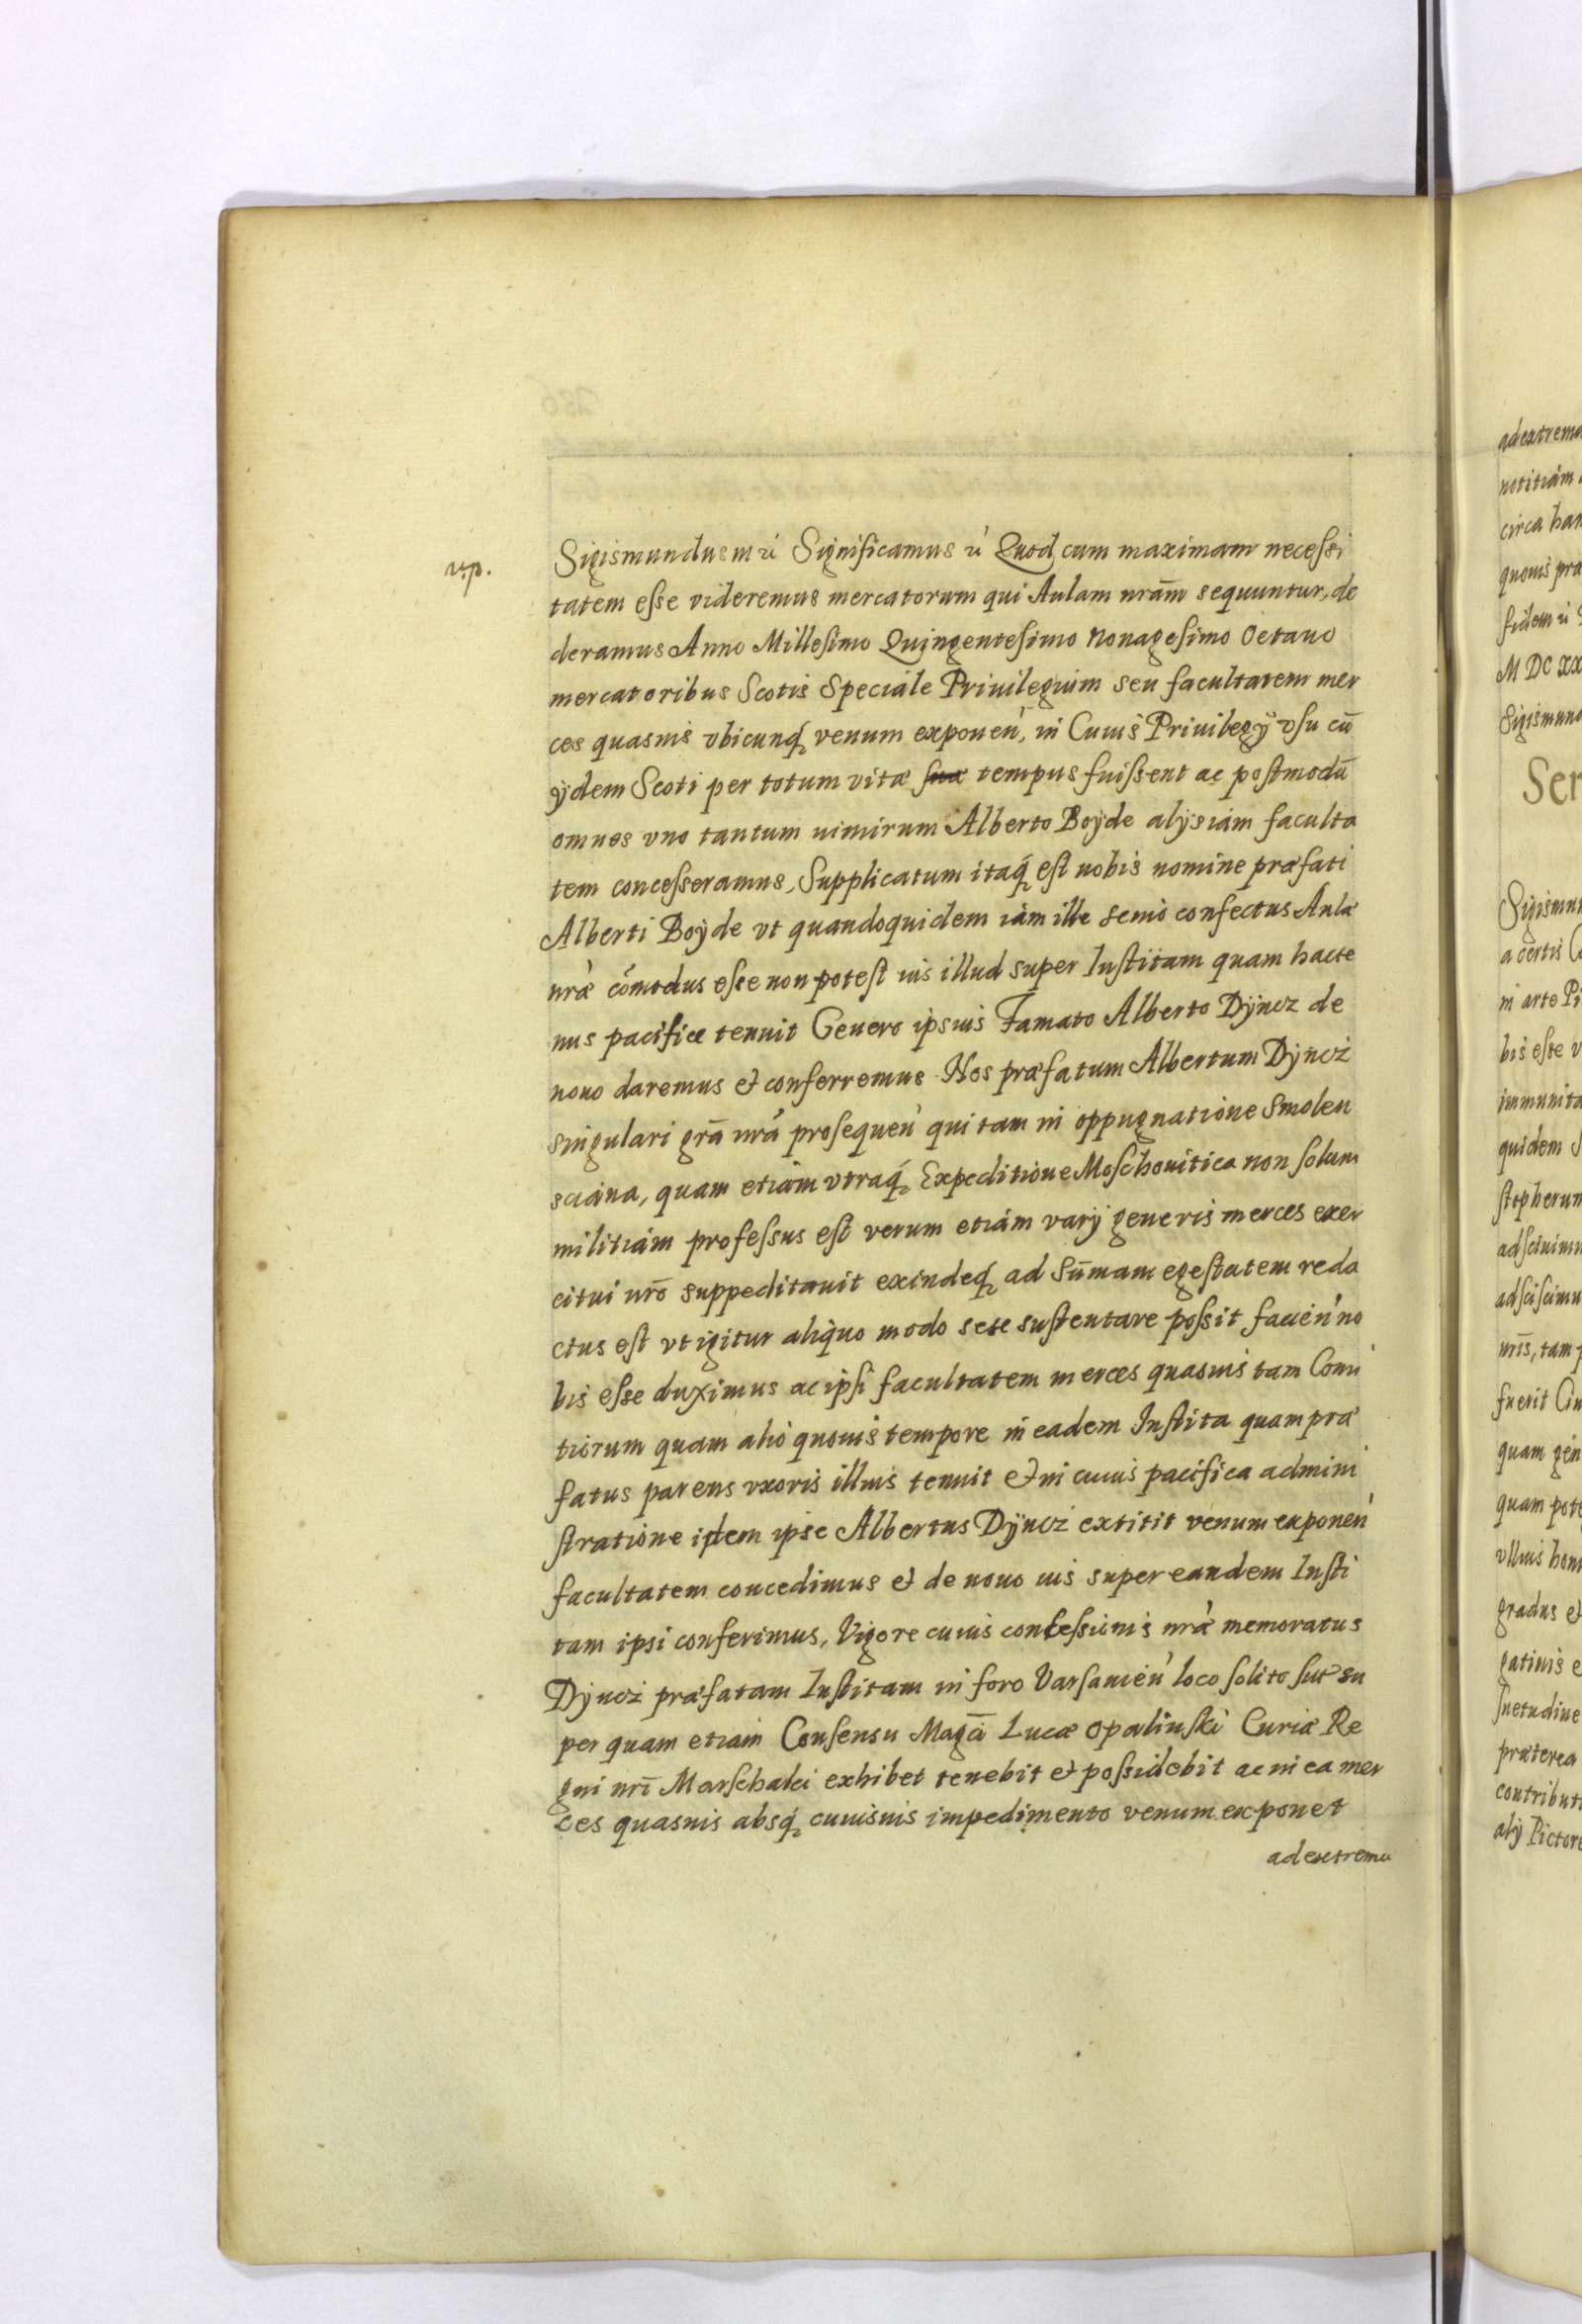 v.p.
Sigismundus m ú Significamus ú Quod cum maximam necessi
tatem esse videremus mercatorum qui Aulam nrām sequuntur, de
deramus Anno Millesimo Quingentesimo Nonagesimo Octauo
mercatoribus Scotis Speciale Priuilegium seu facultatem mer
ces quasuis vbicunq; venum exponeń, in Cuius Priuilegÿ vsu cū
ÿdem Scoti per totum vitæ suæ tempus fuissent ac postmodū
omnes vno tantum nimirum Alberto Boÿde alÿs iam faculta
tem concesseramus, Supplicatum itaq; est nobis nomine præfati
Alberti Boÿde vt quandoquidem iam ille senio confectus Aulæ
nræ cōmodus esse non potest ius illud super Institam quam hacte
nus pacifice tenuit Genero ipsius Famato Alberto Dÿncz de
nouo daremus et conferremus. Nos præfatum Albertum Dÿncż
singulari grā nrā prosequeń qui tam in oppugnatione Smolen
sciana, quam etiam vtraq; Expeditione Moschouitica non solum
militiam professus est verum etiam varÿ generis merces exer
citui nrō suppeditauit exindeq; ad Sūmam egestatem reda
ctus est vt igitur aliquo modo sese sustentare possit facień no
bis esse duximus ac ipsi facultatem merces quasuis tam Comi
tiorum quam alio quouis tempore in eadem Instita quam præ
fatus parens vxoris illius tenuit et in cuius pacifica admini
stratione idem ipse Albertus Dÿncż extitit venum exponeń
facultatem concedimus et de nouo ius super eandem Insti
tam ipsi conferimus, Vigore cuius concessionis nræ memoratus
Dÿncż præfatam Institam in foro Varsauień loco solito sitā su
per quam etiam Consensu Magcī Lucæ Opalinski Curiæ Re
gni nrī Marschalci exhibet tenebit et possidebit ac in ea mer
ces quasuis absq; cuiusuis impedimento venum exponet
ad extrema
ad extrema
notitiam
circa han
quouis pra
fidem ú
M DC XX
Sigismund
Ser
Sigismun
a certis
in arte Pi
bis esse v
immunita
quidem
stopherum
adsciuimu
adsciscimu
nrīs, tam
fuerit
quam
quam pote
vllius hom
gradus et
gatiuis e
suetudine
præterea
contributi
alÿ Pictore